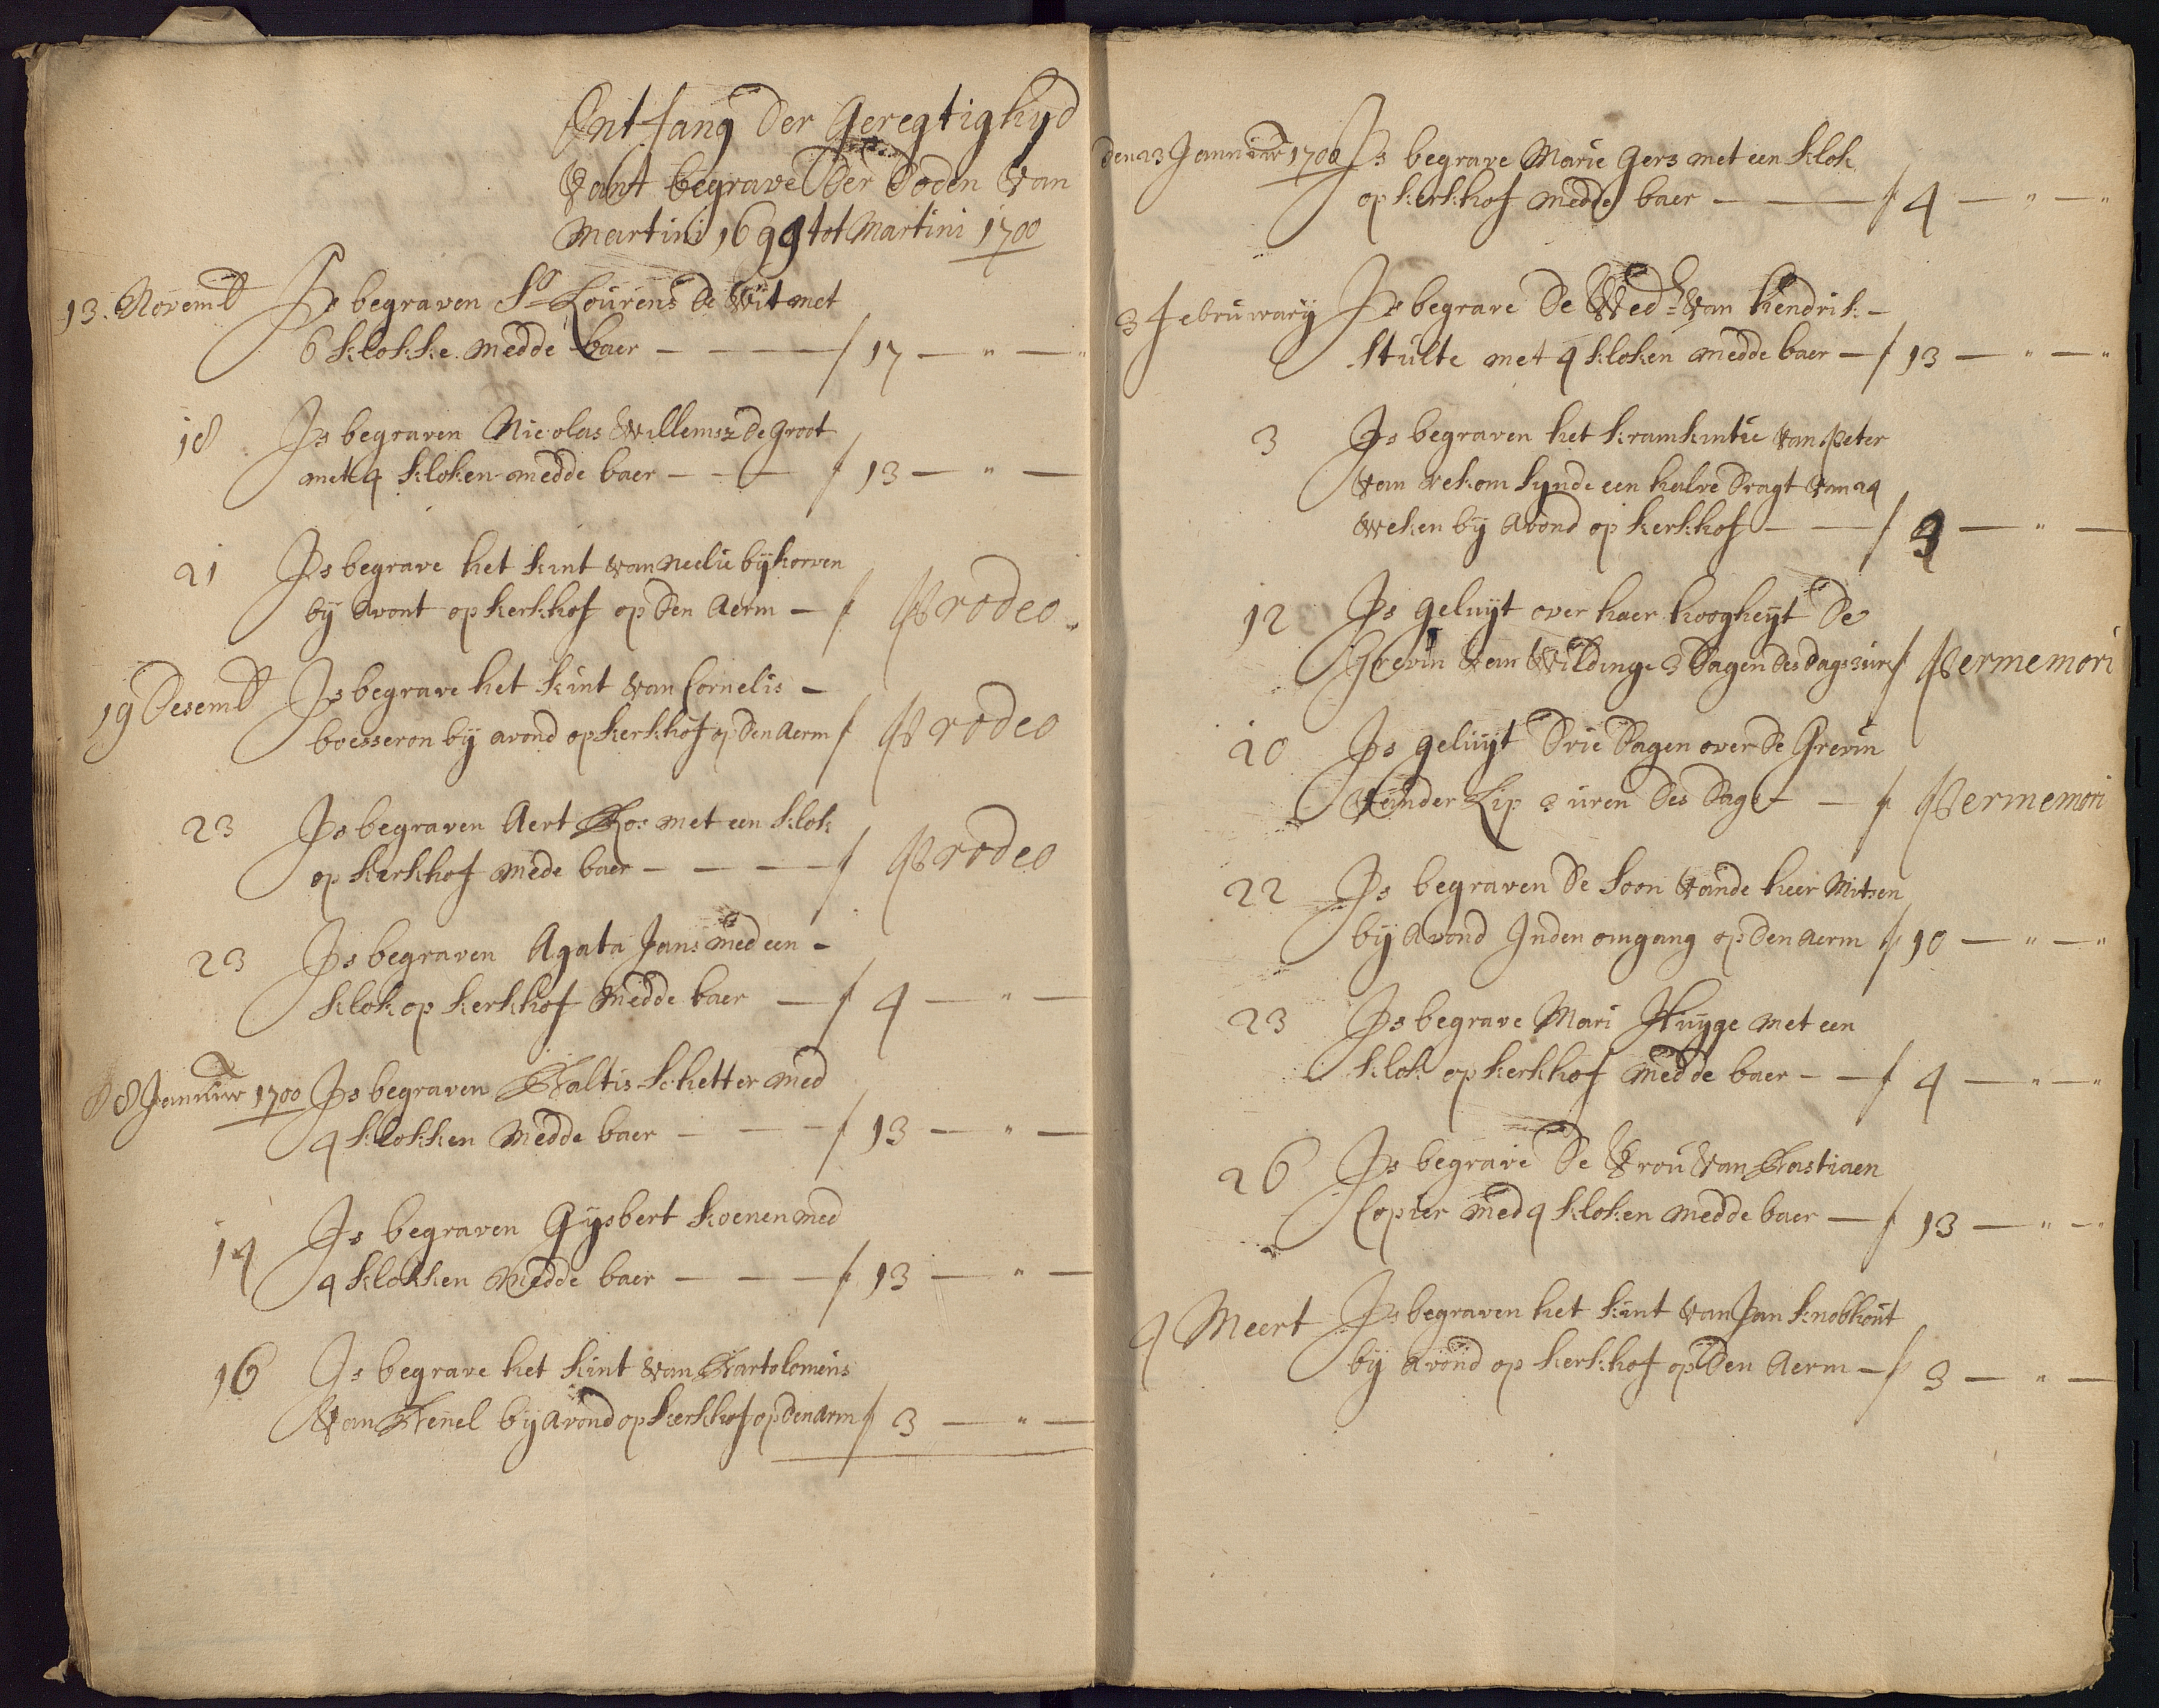 Ontfang der Geregtighyd
Vant begrave der Doden Van
Martini 1699 tot Martini 1700
13. Novemb Is begraven Sr Lourens de Wit met
6 klokke medde baer — f 17 — " —
18 Is begraven Nicolas Willemsz de Groot
met 4 kloken medde baer — f 13 — " —
21 Is begrave het kint van Neelie bijkorven
bij avont op kerkhof op den Aerm — f Prodeo
19 Desemb Is begrave het kint van Cornelis —
boesseron bij avond op kerkhof op den Aerm f Prodeo
23 Is begraven Aert Bos met een klok
op kerkhof mede baer — f Prodeo
23 Is begraven Agata Jans med een —
klok op kerkhof medde baer — f 4 — " —
8 Januwar 1700 Is begraven Baltis Schetter med
4 klokken medde baer — f 13 — " —
14 Is begraven Gysbert koenen med
4 klokken medde baer — f 13 — " —
16 Is begrave het kint van Bartolomeus
Van Benel bij avond op kerkhof op den arm f 3 — " —
den 23 Januwar 1700 Is begrave Marie Gers met een klok
op kerkhof medde baer — f 4 — " — "
3 februwary Is begrave de Wed: van hendrik —
Stulte met 4 kloken medde baer — f 13 — " — "
3 Is begraven het kramkintie van Peter
van rekom synde een halve dragt van 24
weken bij avond op kerkhof — f 3 — " —
12 Is geluyt over haer hoogheyt de
Grevin van Wildinge 3 dagen des dags 3 ure f Permemori
20 Is geluyt drie dagen over de Grevin
vander Lip 3 uren des dags — f Permemori
22 Is begraven de soon vande heer Mitsen
bij avond Inden omgang op den aerm f 10 — " — "
23 Is begrave Mari Huyge met een
klok op kerkhof medde baer — f 4 — " — "
26 Is begrave de Vrou van Bastiaen
Copier med 4 kloken medde baer — f 13 — " — "
4 Meert Is begraven het kint van Jan knobhout
bij avond op kerkhof op den Aerm — f 3 — " —